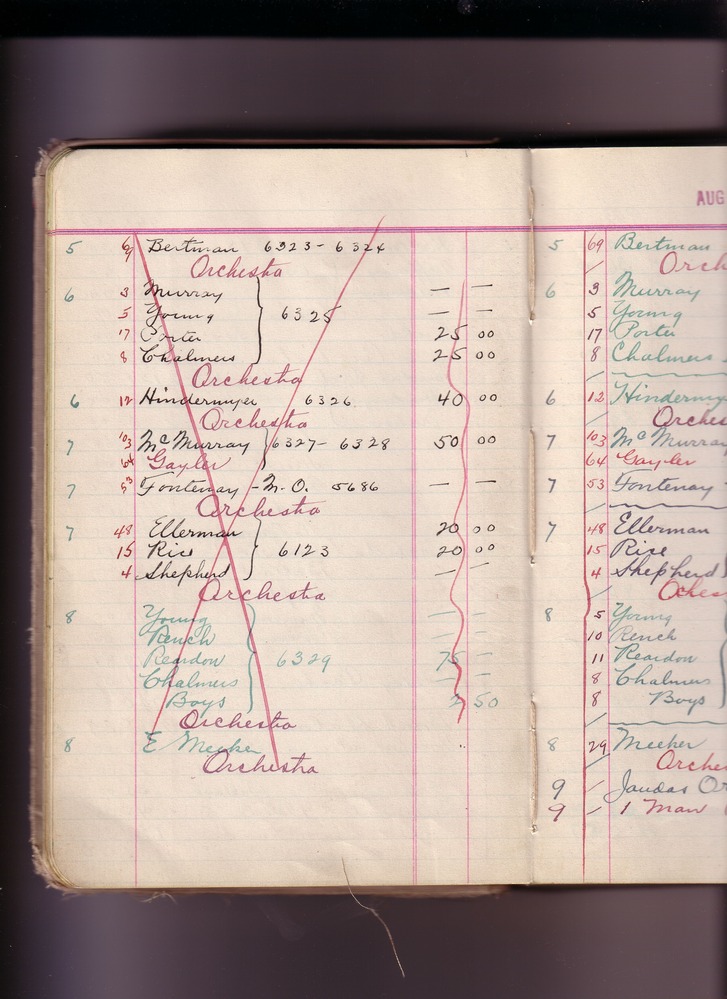 5 69 Bertman 6323 - 6324
Orchestra
6 3 Murray — —
5 Young 6325 — —
17 Porter 25 00
8 Chalmers 25 00
Orchestra
6 12 Hindermyer 6326 40 00
Orchestra
7 103 McMurray 6327 - 6328 50 00
64 Gayler
7 53 Fontenay - M.O. 5686 — —
Orchestra
7 48 Ellerman 20 00
15 Rice 6123 20 00
4 Shepherd — —
Orchestra
8 Young — —
Rench — —
Reardon 6329 75 —
Chalmers — —
Boys 2 50
Orchestra
8 E Meeker
Orchestra
AUG
5 69 Bertman
Orch
6 3 Murray
5 Young
17 Porter
8 Chalmers
6 12 Hindermye
Orches
7 103 McMurra
64 Gayler
7 53 Fontenay
7 48 Ellerman
15 Rise
4 Shepherd
Oches
8 5 Young
10 Rench
11 Reardon
8 Chalmers
8 Boys
8 29 Meeker
Orche
9 Jaudas Or
9 1 Man